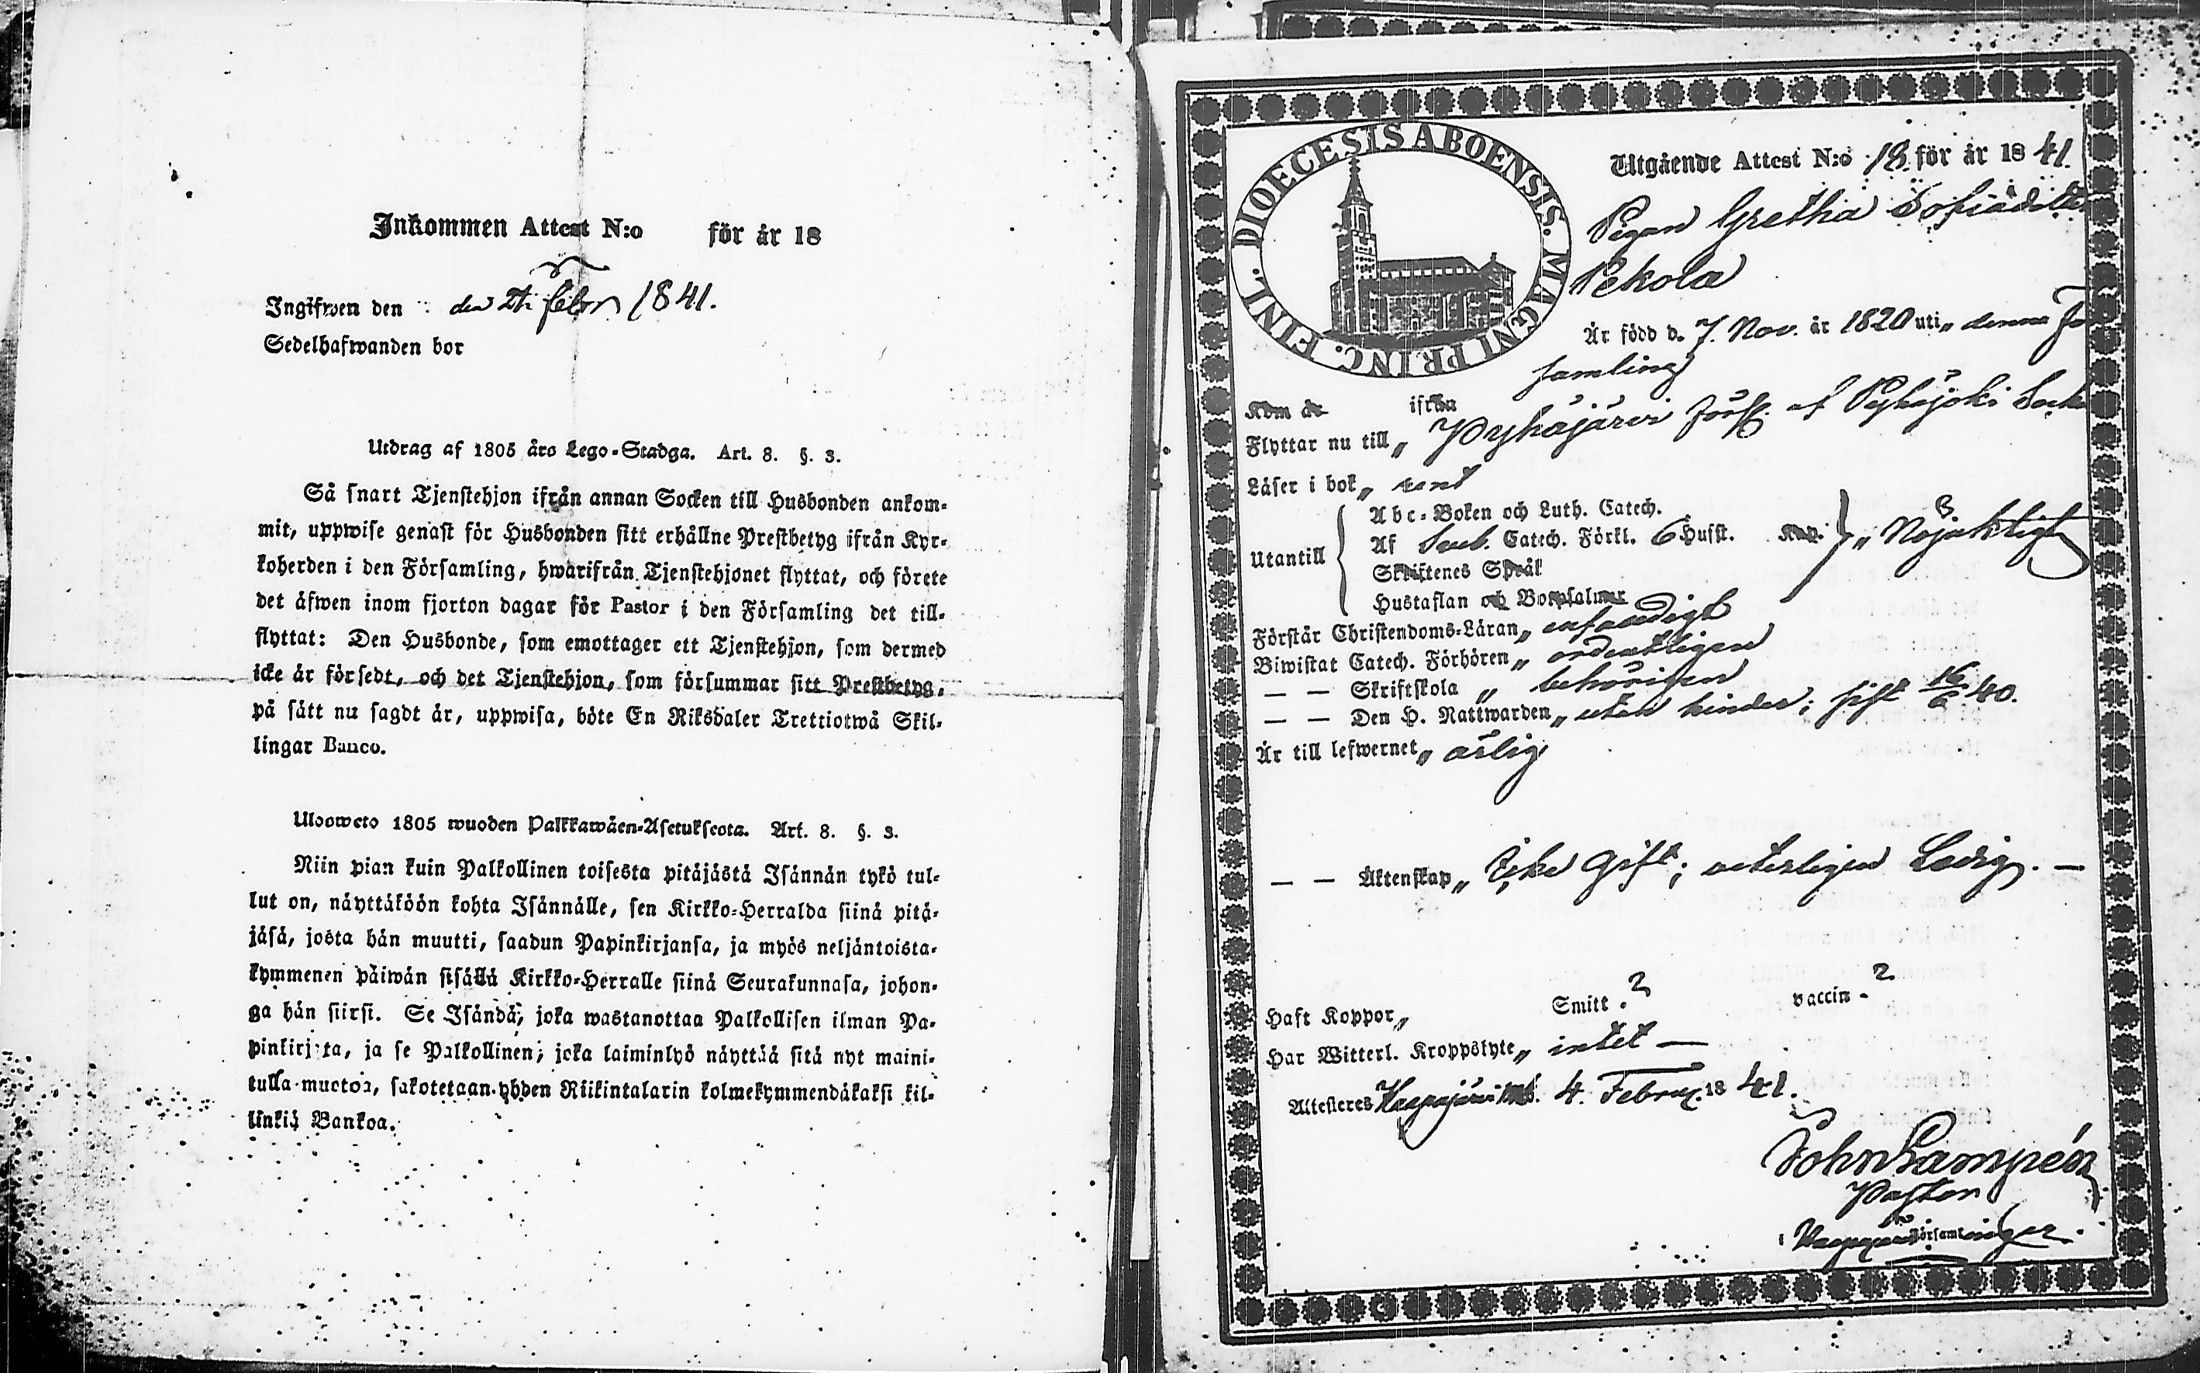 Inkommen Attest N:o för år 18
Ingifwen den den febr 1841.
Sedelhafwanden bor
Utdrag af 1805 års Lego-Stadga. Art. 8. §. 3.
Så snart Tjenstehjon ifrån annan Socken till Husbonden ankom-
mit, uppwise genast för Husbonden sitt erhållne Prestbetyg ifrån Kyr-
koherden i den Församling, hwarifrån Tjenstehjonet flyttat, och förete
det äfwen inom fjorton dagar för Pastor i den Församling det till-
flyttat: Den Husbonde, som emottager ett Tjenstehjon, som dermed
icke är försedt, och det Tjenstehjon, som försummar sitt Prestbetyg,
på sätt nu sagdt är, uppwisa, böte En Riksdaler Trettiotwå Skil-
lingar Banco.
Ulosweto 1805 wuoden Palkkawäen-Asetuksesta. Art. 8. §. 3.
Niin pian kuin Palkollinen toisesta pitäjästä Isännän tykö tul-
lut on, näyttäköön kohta Isännälle, sen Kirkko-Herralda siinä pitä-
jäsä, josta hän muutti, saadun Papinkirjansa, ja myös neljäntoista-
kymmenen päiwän sisällä Kirkko-Herralle siinä Seurakunnasa, johon-
ga hän siirsi. Se Isändä, joka wastanottaa Palkollisen ilman Pa-
pinkirjata, ja se Palkollinen, joka laiminlyö näyttää sitä nyt maini-
tulla muotoa, sakotetaan yhden Riikintalarin kolmekymmendäkaksi kil-
linkiä Bankoa.
DIOECESIS ABOENSIS. MAGNI PRINC. FINL.
Utgående Attest N:o 18. för år 1841.
Pigan Gretha Sofia
Pekola
Är född d. 7. Nov. år 1820 uti denna För
samling
Kom år ifrån
Flyttar nu till Pyhäjärvi förs. af Pyhäjoki Sock
Läser i bok rent
Utantill
Abc-Boken och Luth. Catech.
Af Sveb. Catech. Förkl. 6 Husst. Kap.
Skriftenes Språk
Hustaflan och Botpsalmer
Nöjaktigt
Förstår Christendoms-Läran enfaldigt
Biwistat Catech. Förhören ordentligen
— — Skriftskola behörigen
— — Den H. Nattwarden utan hinder; sist 16/6 40.
Är till lefwernet ärlig
— — Äktenskap Icke Gift; veterligen Ledig. —
Haft Koppor Smitt. ? vaccin. ?
Har Witterl. Kroppslyte intet —
Attesteras Haapajärvi d. 4. Februar. 1841.
Joh Lampén
Pastor
i Haapajärvi Församlingar.